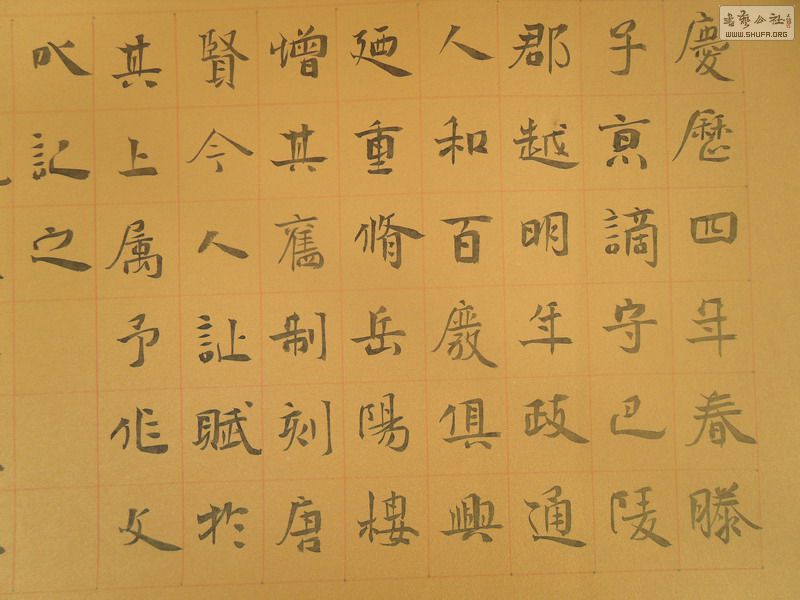 慶歷四年春滕
子京謫守巴陵
郡越明年政通
人和百廢俱興
廼重脩岳陽樓
增其舊制刻唐
賢今人詩賦於
其上属予作文
以記之
書藝公社
WWW.SHUFA.ORG